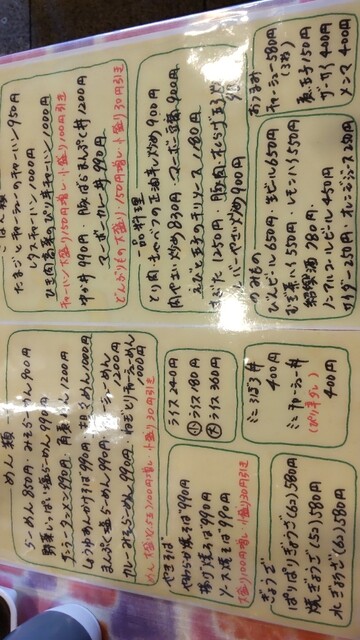 めん類
らーめん 800円・みそらーめん 900円
野菜いっぱい塩らーめん 990円
タンターメン 990円・角煮らーめん 1200円
しょうゆあんかけそば 990円
まんぷく塩らーめん 990円
カレーみそらーめん 990円・ねぎとりチャーシューめん 1000円
めん大盛り 100円増し・小盛り30円引き
ごはん類
たまごとチャーシューのチャーハン 950円
レタスチャーハン 1000円
ひき肉高菜のピリ辛チャーハン 1000円
チャーハン大盛り150円増し・小盛り100円引き
中か丼 990円・豚ばらまんぷく丼 1200円
マーボーカレー丼 990円
どんぶりもの大盛り150円増し・小盛り30円引き
やきそば
やわらか焼そば 990円
揚げ焼そば 990円
ソース焼そば 990円
大盛り100円増し・小盛り30円引き
ライス 240円
小 ライス 180円
大 ライス 360円
一品料理
とり肉とキャベツの正油辛し炒め 900円
肉やさい炒め 830円・マーボー豆腐 900円
えびと玉子のチリソース 1180円
すぶた 1250円・豚肉・木くらげ・玉子
レバーやさい炒め 900円
ぎょうざ
ぱりぱりぎょうざ(6コ) 580円
焼ぎょうざ(5コ) 580円
水ぎょうざ(6コ) 580円
ミニまぼろ丼
400円
ミニチャーシュー丼
(ぴり辛ダレ)
400円
のみもの
びんビール 650円・生ビール 650円
むぎ茶ハイ 550円・レモンハイ 550円
紹興酒 780円
ノンアルコールビール 450円
サイダー 250円・オレンジジュース 250円
おつまみ
チャーシュー 580円
(3枚)
煮玉子 150円
ザーサイ 400円
メンマ 400円